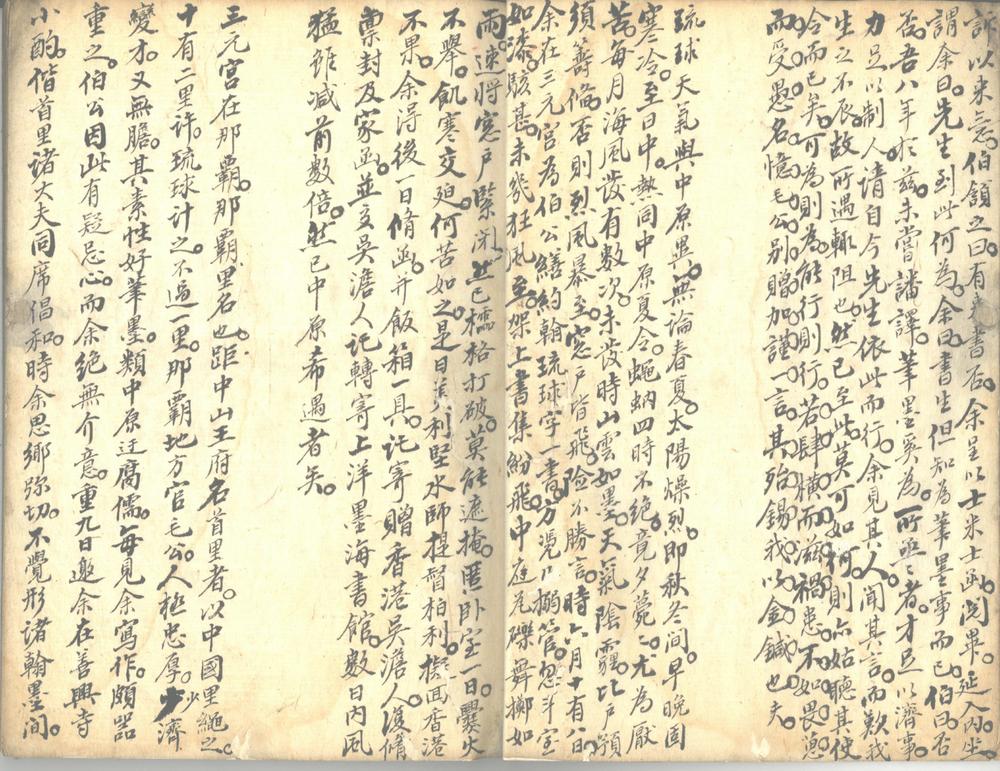 訴以来意。伯頷之。曰。有来書否。余呈以士米士函。閲畢。延入内坐。
謂余曰。先生到此何為。余曰。書生但知為筆墨事而已。伯曰。否
否。吾八年於茲。未嘗譒譯。筆墨奚為。所亟亟者。才足以濟事。
力足以制人。請自今先生依此而行。余見其人。聞其言。而歎我
生之不辰。故所遇輒阻也。然已至此。莫可如何。則亦姑聽其使
令而已矣。可為則為。能行則行。若肆橫而滋禍患。不如畏葸
而受愚名。憶毛公別贈加謹一言。其殆錫我以金鍼也夫。
琉球天氣與中原異。無論春夏。太陽燥烈。即秋冬間。早晚固
寒冷。至日中。熱同中原夏令。蠅蚋四時不絕。竟夕薨薨。尤為厭
苦。每月海風發有數次。未發時。山雲如墨。天氣陰霾。比戶預
須籌備。否則烈風暴至。窓戶皆飛。險不勝言。時六月十有八日。
余在三元宮為伯公繕約翰琉球字一書。方憑几搦管。忽斗室
如漆。駭甚。未幾狂風至。架上書集紛飛。中庭瓦礫舞擲如
雨。速將窓戶緊閉。然已櫺格打破。莫能遮掩。匿臥室一日。爨火
不舉。飢寒交廹。何苦如之。是日美利堅水師提督柏利。擬回香港
不果。余得後一日脩函。并飯箱一具。託寄贈香港吳澹人。復脩
稟封及家函。並交吳澹人託轉寄上洋墨海書館。數日内風
猛雖減前數倍。然已中原希遇者矣。
三元宮在那霸。那霸里名也。距中山王府名首里者。以中國里繩之。
十有二里許。琉球計之。不過一里。那霸地方官毛公。人極忠厚。少濟
變才。又無膽。其素性好筆墨。類中原迂腐儒。每見余寫作。頗器
重之。伯公因此有疑忌心。而余絕無介意。重九日邀余在善興寺
小酌。偕首里諸大夫同席倡和。時余思鄉弥切。不覺形諸翰墨間。